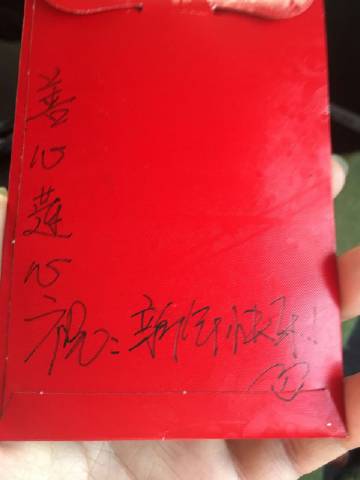 善心莲心
祝:新年快乐!
①